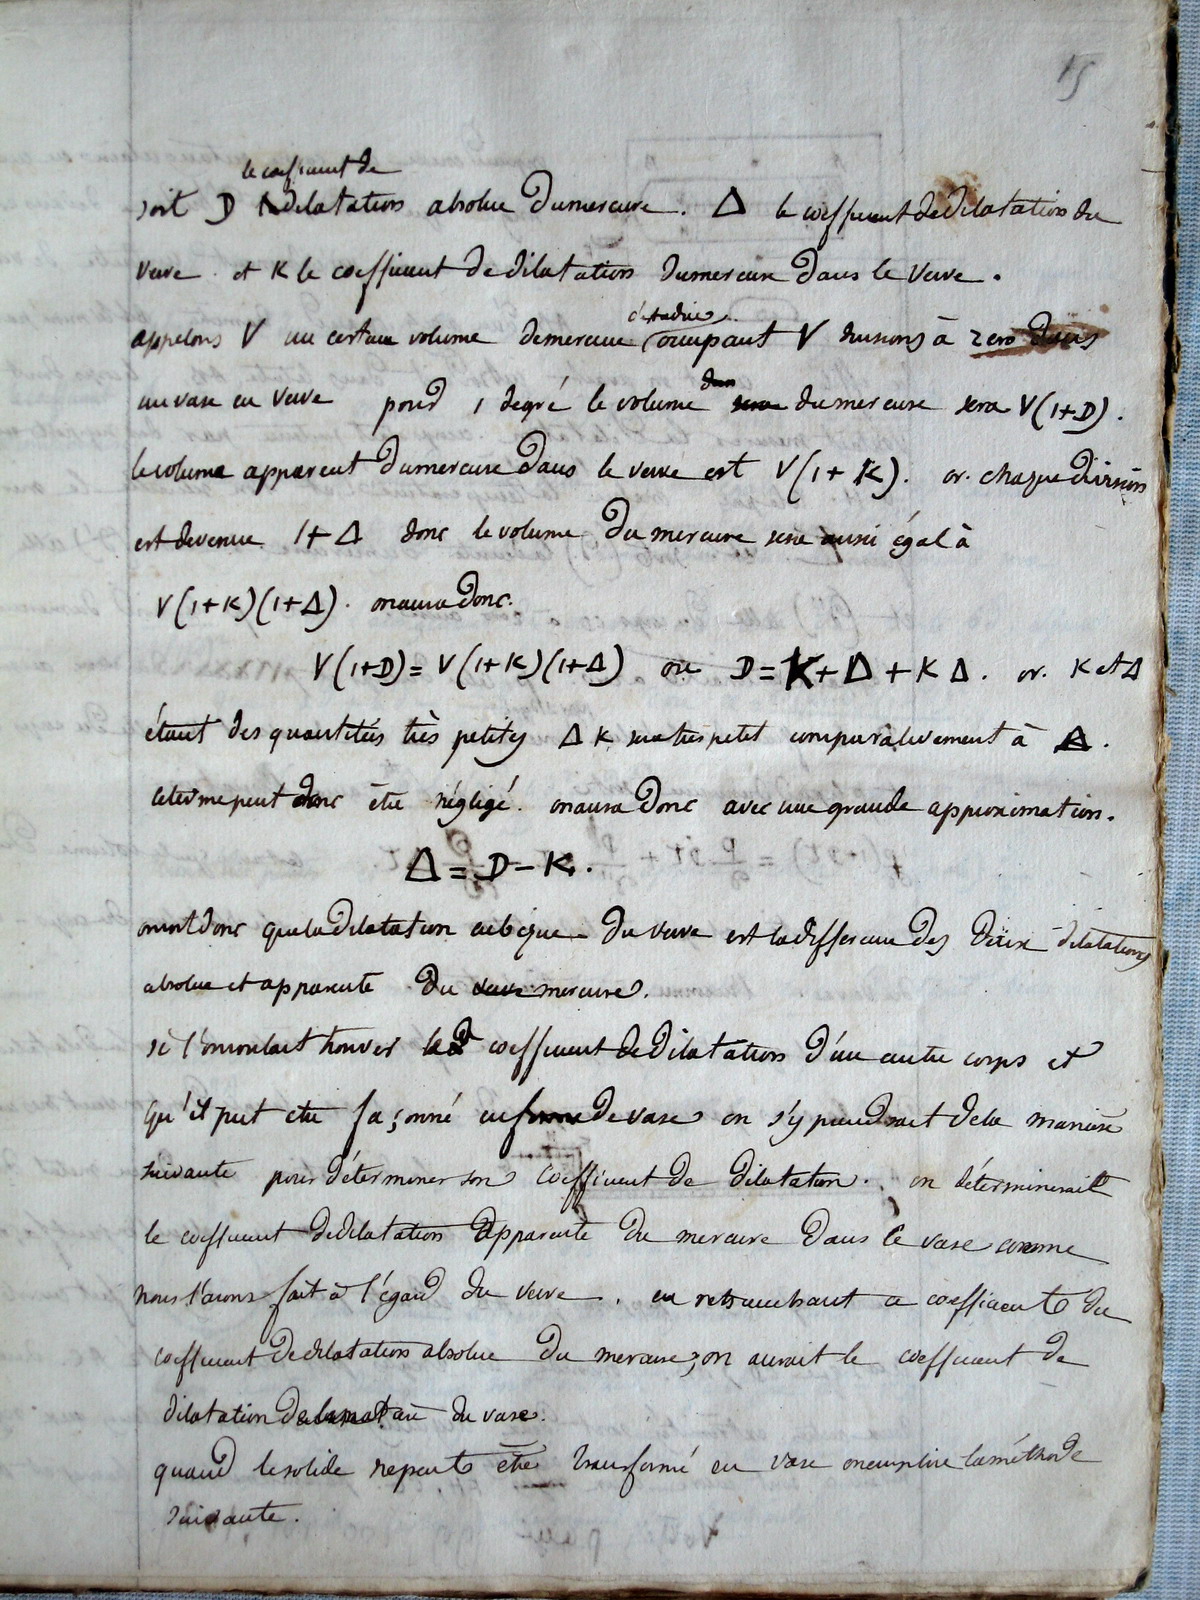 15
le coefficient de
soit D la dilatation absolue du mercure. Δ le coefficient de dilatation du
verre et K le coefficient de dilatation du mercure dans le verre.
c'est à dire
appelons V un certain volume de mercure occupant V divisions à zero dans
un vase en verre pour 1 degré le volume du mercure sera V(1+D).
le volume apparent du mercure dans le verre est V(1+K). or chaque division
est devenue 1+Δ donc le volume du mercure sera aussi égal à
V(1+K)(1+Δ). on aura donc.
V(1+D)=V(1+K)(1+Δ) ou D=K+Δ+KΔ. or. K et Δ
étant des quantités très petites ΔK sera très petit comparativement à Δ.
ce terme peut donc être négligé. on aura donc avec une grande approximation.
Δ=D-K.
on voit donc que la dilatation cubique du verre est la difference des deux dilatations
absolue et apparente du verre mercure.
si l'on voulait trouver le coefficient de dilatation d'un autre corps et
qu'il put etre façonné en forme de vase on s'y prendrait de la manière
suivante pour déterminer son coefficient de dilatation. on déterminerait
le coefficient de dilatation apparente du mercure dans le vase comme
nous l'avons fait à l'égard du verre. en retranchant ce coefficient du
coefficient de dilatation absolue du mercure, on aurait le coefficient de
dilatation du vase.
quand le solide ne peut être transformé en vase on emploie la méthode
suivante.